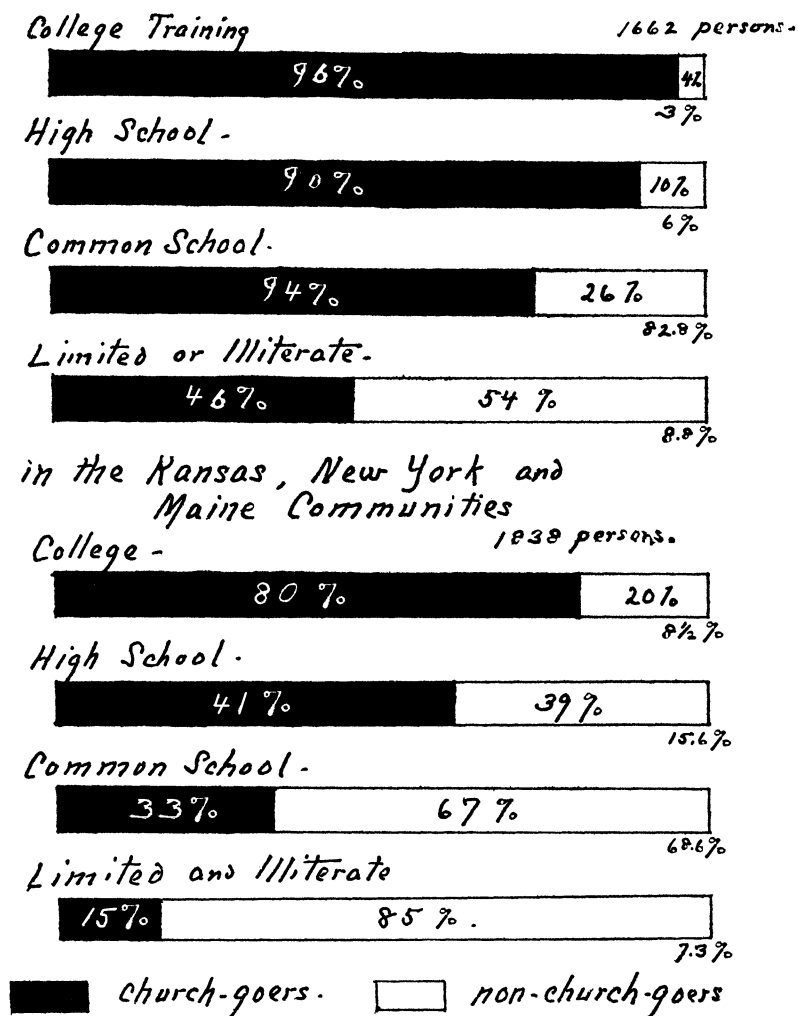 College Training 1662 persons.
96% 4%
3%
High School-
90% 10%
6%
Common School.
94% 26%
82.8%
Limited or Illiterate-
46% 54%
8.8%
in the Kansas, New York and
Maine Communities
1838 persons.
College -
80% 20%
8½%
High School.
41% 39%
15.6%
Common School-
33% 67%
68.6%
Limited and Illiterate
15% 85%.
7.3%
church-goers. non-church-goers